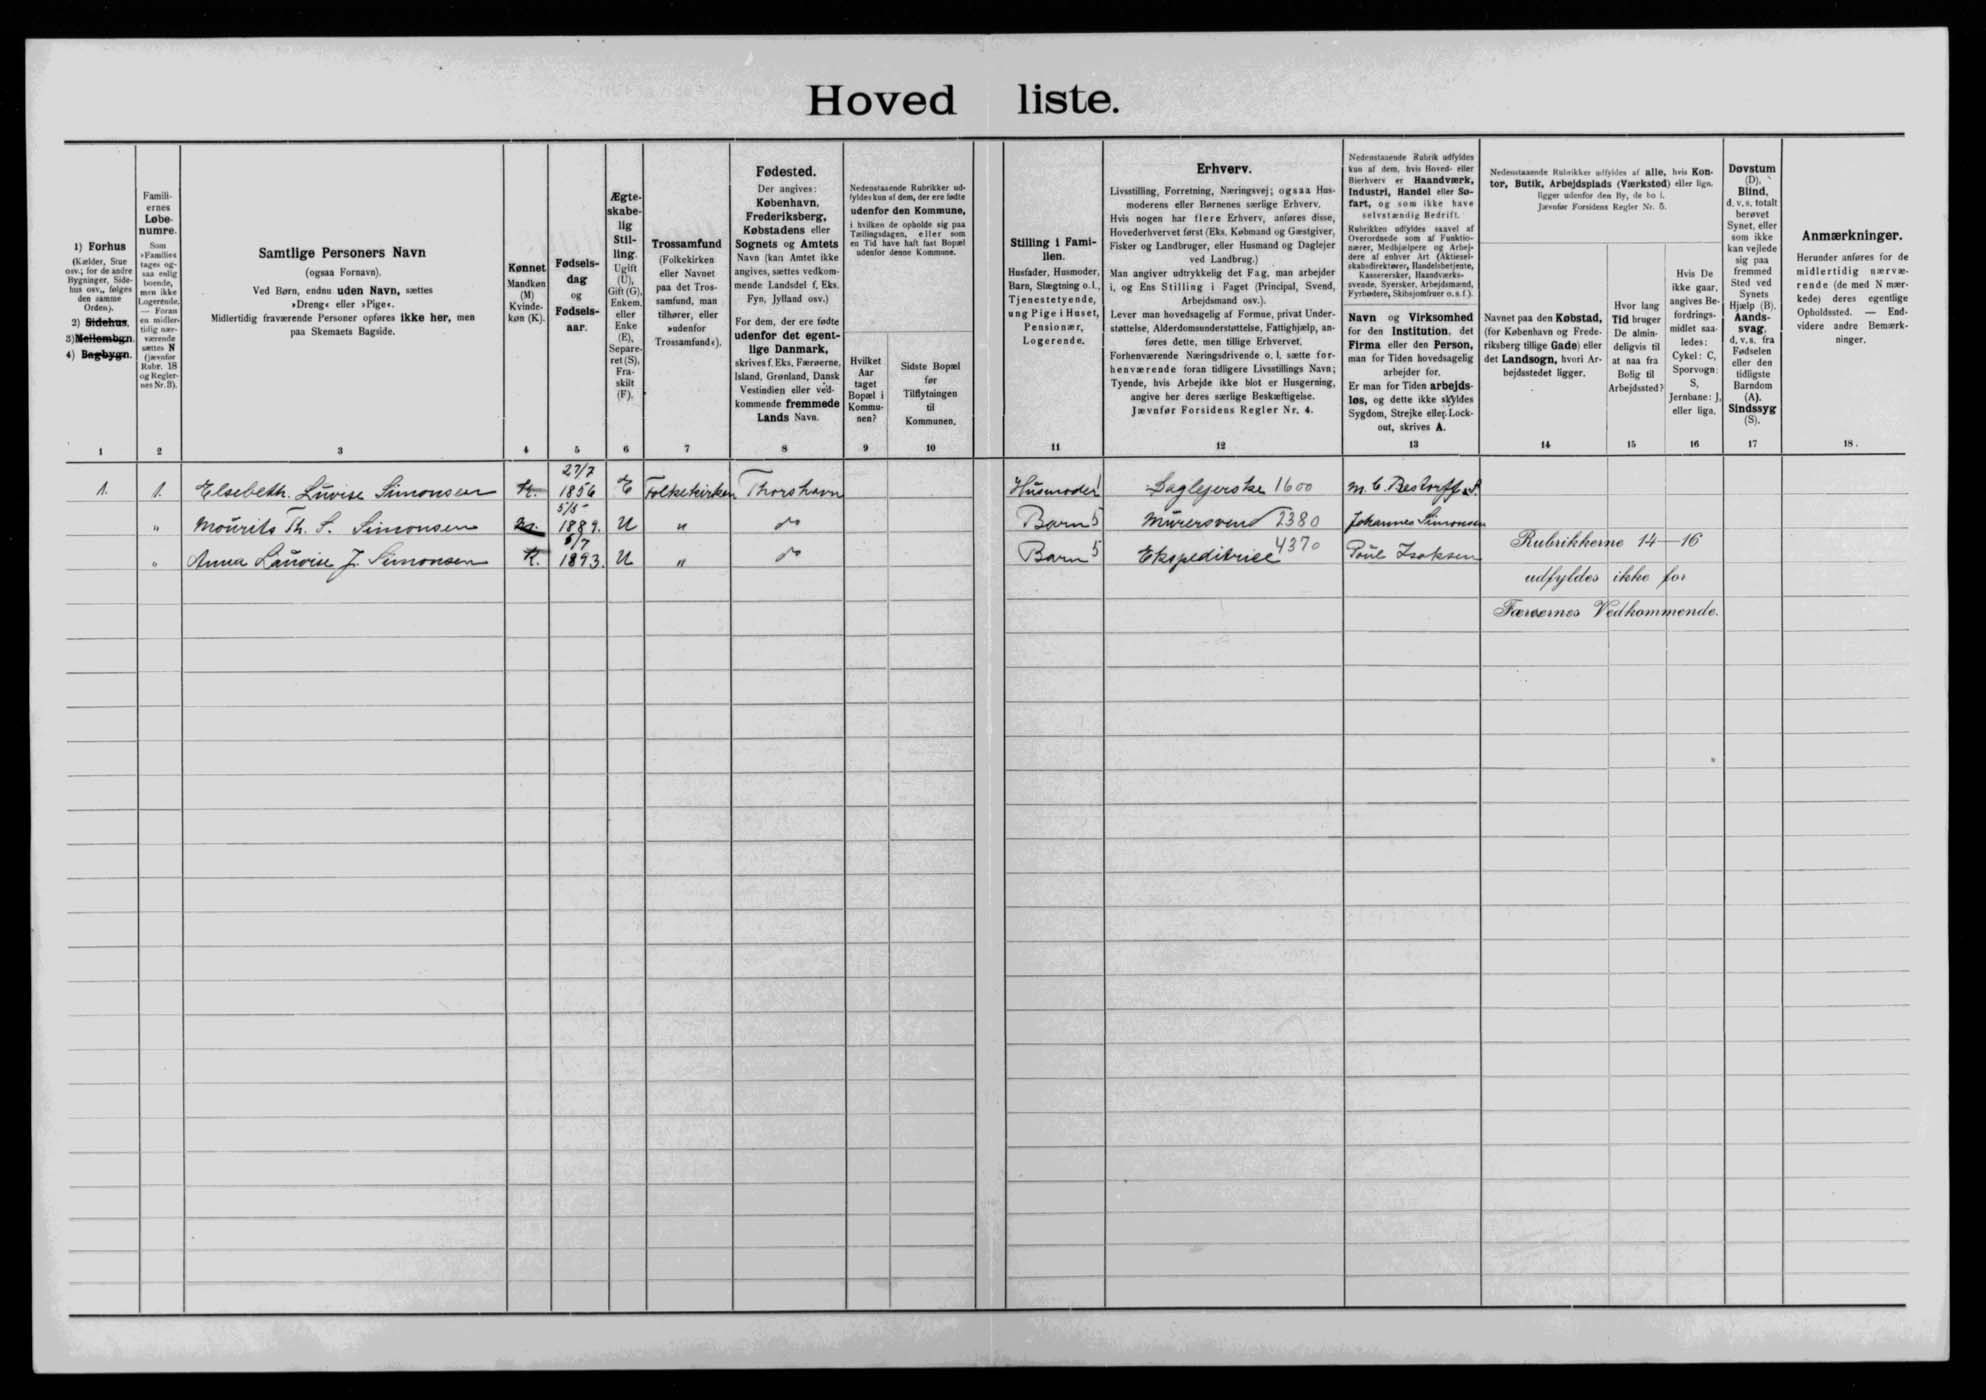 Hoved liste.
1) Forhus
(Kælder, Stue
osv.; for de andre
Bygninger, Side-
hus osv., følges
den samme
Orden).
2) Sidehus,
3) Mellembgn.
4) Bagbygn.
1
Famili-
ernes
Løbe-
numre.
Som
»Familie«
tages og-
saa enlig
boende,
men ikke
Logerende.
— Foran
en midler-
tidig nær-
værende
sættes N
(jævnfør
Rubr. 18
og Regler-
nes Nr. 3).
2
Samtlige Personers Navn
(ogsaa Fornavn).
Ved Børn, endnu uden Navn, sættes
»Dreng« eller »Pige«.
Midlertidig fraværende Personer opføres ikke her, men
paa Skemaets Bagside.
3
Kønnet
Mandkøn
(M)
Kvinde-
køn (K).
4
Fødsels-
dag
og
Fødsels-
aar.
5
Ægte-
skabe-
lig
Stil-
ling.
Ugift
(U),
Gift (G),
Enkem.
eller
Enke
(E),
Separe-
ret (S),
Fra-
skilt
(F).
6
Trossamfund
(Folkekirken
eller Navnet
paa det Tros-
samfund, man
tilhører, eller
»udenfor
Trossamfund«).
7
Fødested.
Der angives:
København,
Frederiksberg,
Købstadens eller
Sognets og Amtets
Navn (kan Amtet ikke
angives, sættes vedkom-
mende Landsdel f. Eks.
Fyn, Jylland osv.)
For dem, der ere fødte
udenfor det egent-
lige Danmark,
skrives f. Eks. Færøerne,
Island, Grønland, Dansk
Vestindien eller ved-
kommende fremmede
Lands Navn.
8
Nedenstaaende Rubrikker ud-
fyldes kun af dem, der ere fødte
udenfor den Kommune,
i hvilken de opholde sig paa
Tællingsdagen, eller som
en Tid have haft fast Bopæl
udenfor denne Kommune.
Hvilket
Aar
taget
Bopæl i
Kommu-
nen?
9
Sidste Bopæl
før
Tilflytningen
til
Kommunen.
10
Stilling i Fami-
lien.
Husfader, Husmoder,
Barn, Slægtning o. l.,
Tjenestetyende,
ung Pige i Huset,
Pensionær,
Logerende.
11
Erhverv.
Livsstilling, Forretning, Næringsvej; ogsaa Hus-
moderens eller Børnenes særlige Erhverv.
Hvis nogen har flere Erhverv, anføres disse,
Hovederhvervet først (Eks. Købmand og Gæstgiver,
Fisker og Landbruger, eller Husmand og Daglejer
ved Landbrug.)
Man angiver udtrykkelig det Fag, man arbejder
i, og Ens Stilling i Faget (Principal, Svend,
Arbejdsmand osv.).
Lever man hovedsagelig af Formue, privat Under-
støttelse, Alderdomsunderstøttelse, Fattighjælp, an-
føres dette, men tillige Erhvervet.
Forhenværende Næringsdrivende o. l. sætte for-
henværende foran tidligere Livsstillings Navn;
Tyende, hvis Arbejde ikke blot er Husgerning,
angive her deres særlige Beskæftigelse.
Jævnfør Forsidens Regler Nr. 4.
12
Nedenstaaende Rubrik udfyldes
kun af dem, hvis Hoved- eller
Bierhverv er Haandværk,
Industri, Handel eller Sø-
fart, og som ikke have
selvstændig Bedrift.
Rubrikken udfyldes saavel af
Overordnede som af Funktio-
nærer, Medhjælpere og Arbej-
dere af enhver Art (Aktiesel-
skabsdirektører, Handelsbetjente,
Kassererske, Haandværks-
svende, Syersker, Arbejdsmænd,
Fyrbødere, Skibsjomfruer o. s. f.).
Navn og Virksomhed
for den Institution, det
Firma eller den Person,
man for Tiden hovedsagelig
arbejder for.
Er man for Tiden arbejds-
løs, og dette ikke skyldes
Sygdom, Strejke eller Lock-
out, skrives A.
13
Nedenstaaende Rubrikker udfyldes af alle, hvis Kon-
tor, Butik, Arbejdsplads (Værksted) eller lign.
ligger udenfor den By, de bo i.
Jævnfør Forsidens Regler Nr. 5.
Navnet paa den Købstad,
(for København og Frede-
riksberg tillige Gade) eller
det Landsogn, hvori Ar-
bejdsstedet ligger.
14
Hvor lang
Tid bruger
De almin-
deligvis til
at naa fra
Bolig til
Arbejdssted?
15
Hvis De
ikke gaar,
angives Be-
fordrings-
midlet saa-
ledes:
Cykel: C,
Sporvogn:
S,
Jernbane: J,
eller liga.
16
Døvstum
(D),
Blind,
d. v. s. totalt
berøvet
Synet, eller
som ikke
kan vejlede
sig paa
fremmed
Sted ved
Synets
Hjælp (B).
Aands-
svag,
d. v. s. fra
Fødselen
eller den
tidligste
Barndom
(A).
Sindssyg
(S).
17
Anmærkninger.
Herunder anføres for de
midlertidig nærvæ-
rende (de med N mær-
kede) deres egentlige
Opholdssted. — End-
videre andre Bemærk-
ninger.
18.
1. 1. Elsebeth. Luvise Simonsen K. 27/7 1856 E Folkekirken Thorshavn Husmoder 1 Daglejerske 1600 M. C. Restorff & S.
" Mourits Th. S. Simonsen M. 5/5 1889. U " do Barn 5 Murersvend 2380 Johannes Simonsen
" Anna Lauvise J. Simonsen K. 5/7 1893. U " do Barn 5 Ekspeditrice 4370 Poul Isaksen
Rubrikkerne 14-16
udfyldes ikke for
Færøernes Vedkommende.